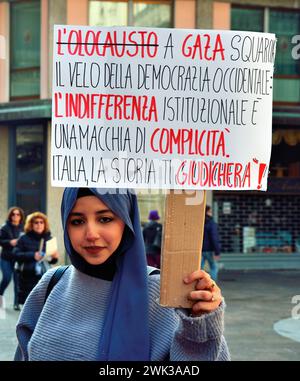 L'OLOCAUSTO A GAZA SQUARCIA
IL VELO DELLA DEMOCRAZIA OCCIDENTALE:
L'INDIFFERENZA ISTITUZIONALE È
UNA MACCHIA DI COMPLICITÀ.
ITALIA, LA STORIA TI GIUDICHERÀ!
alamy
Image ID: 2WA38AD
www.alamy.com